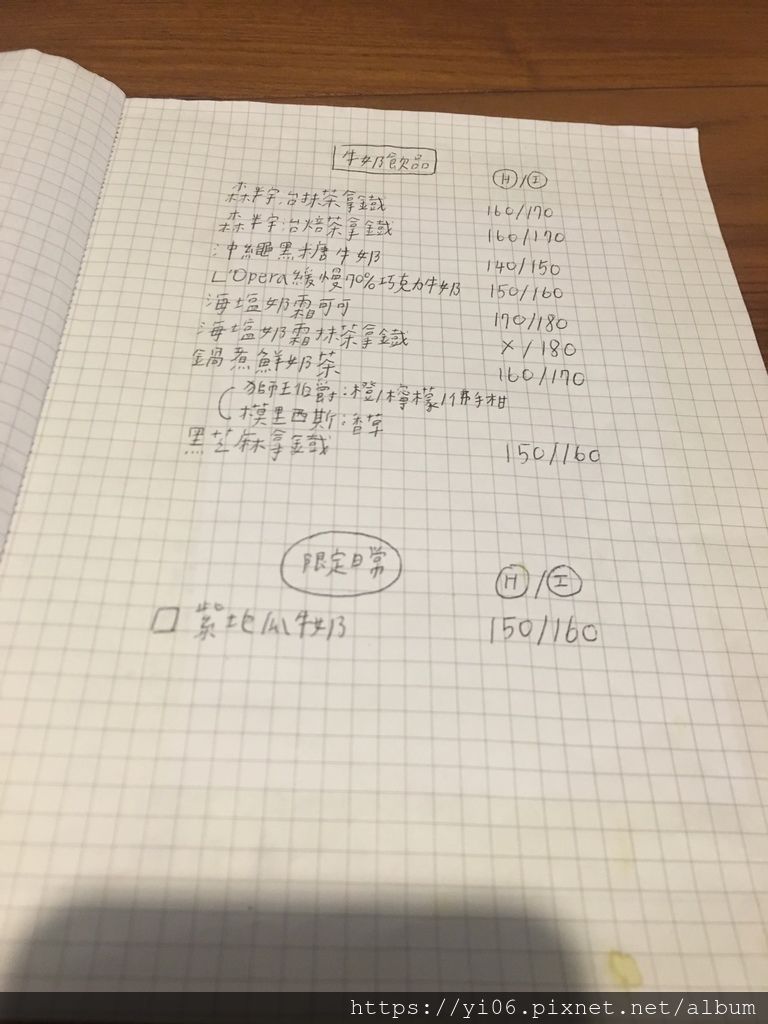 牛奶飲品
Ⓗ/Ⓘ
森半宇治抹茶拿鐵 160/170
森半宇治焙茶拿鐵 160/170
沖繩黑糖牛奶 140/150
L'Opera緩慢70%巧克力牛奶 150/160
海塩奶霜可可 170/180
海塩奶霜抹茶拿鐵 X/180
鍋煮鮮奶茶 160/170
獅王伯爵:橙/檸檬/佛手柑
模里西斯:香草
黑芝麻拿鐵 150/160
限定日常
Ⓗ/Ⓘ
□ 紫地瓜牛奶 150/160
https://yi06.pixnet.net/album